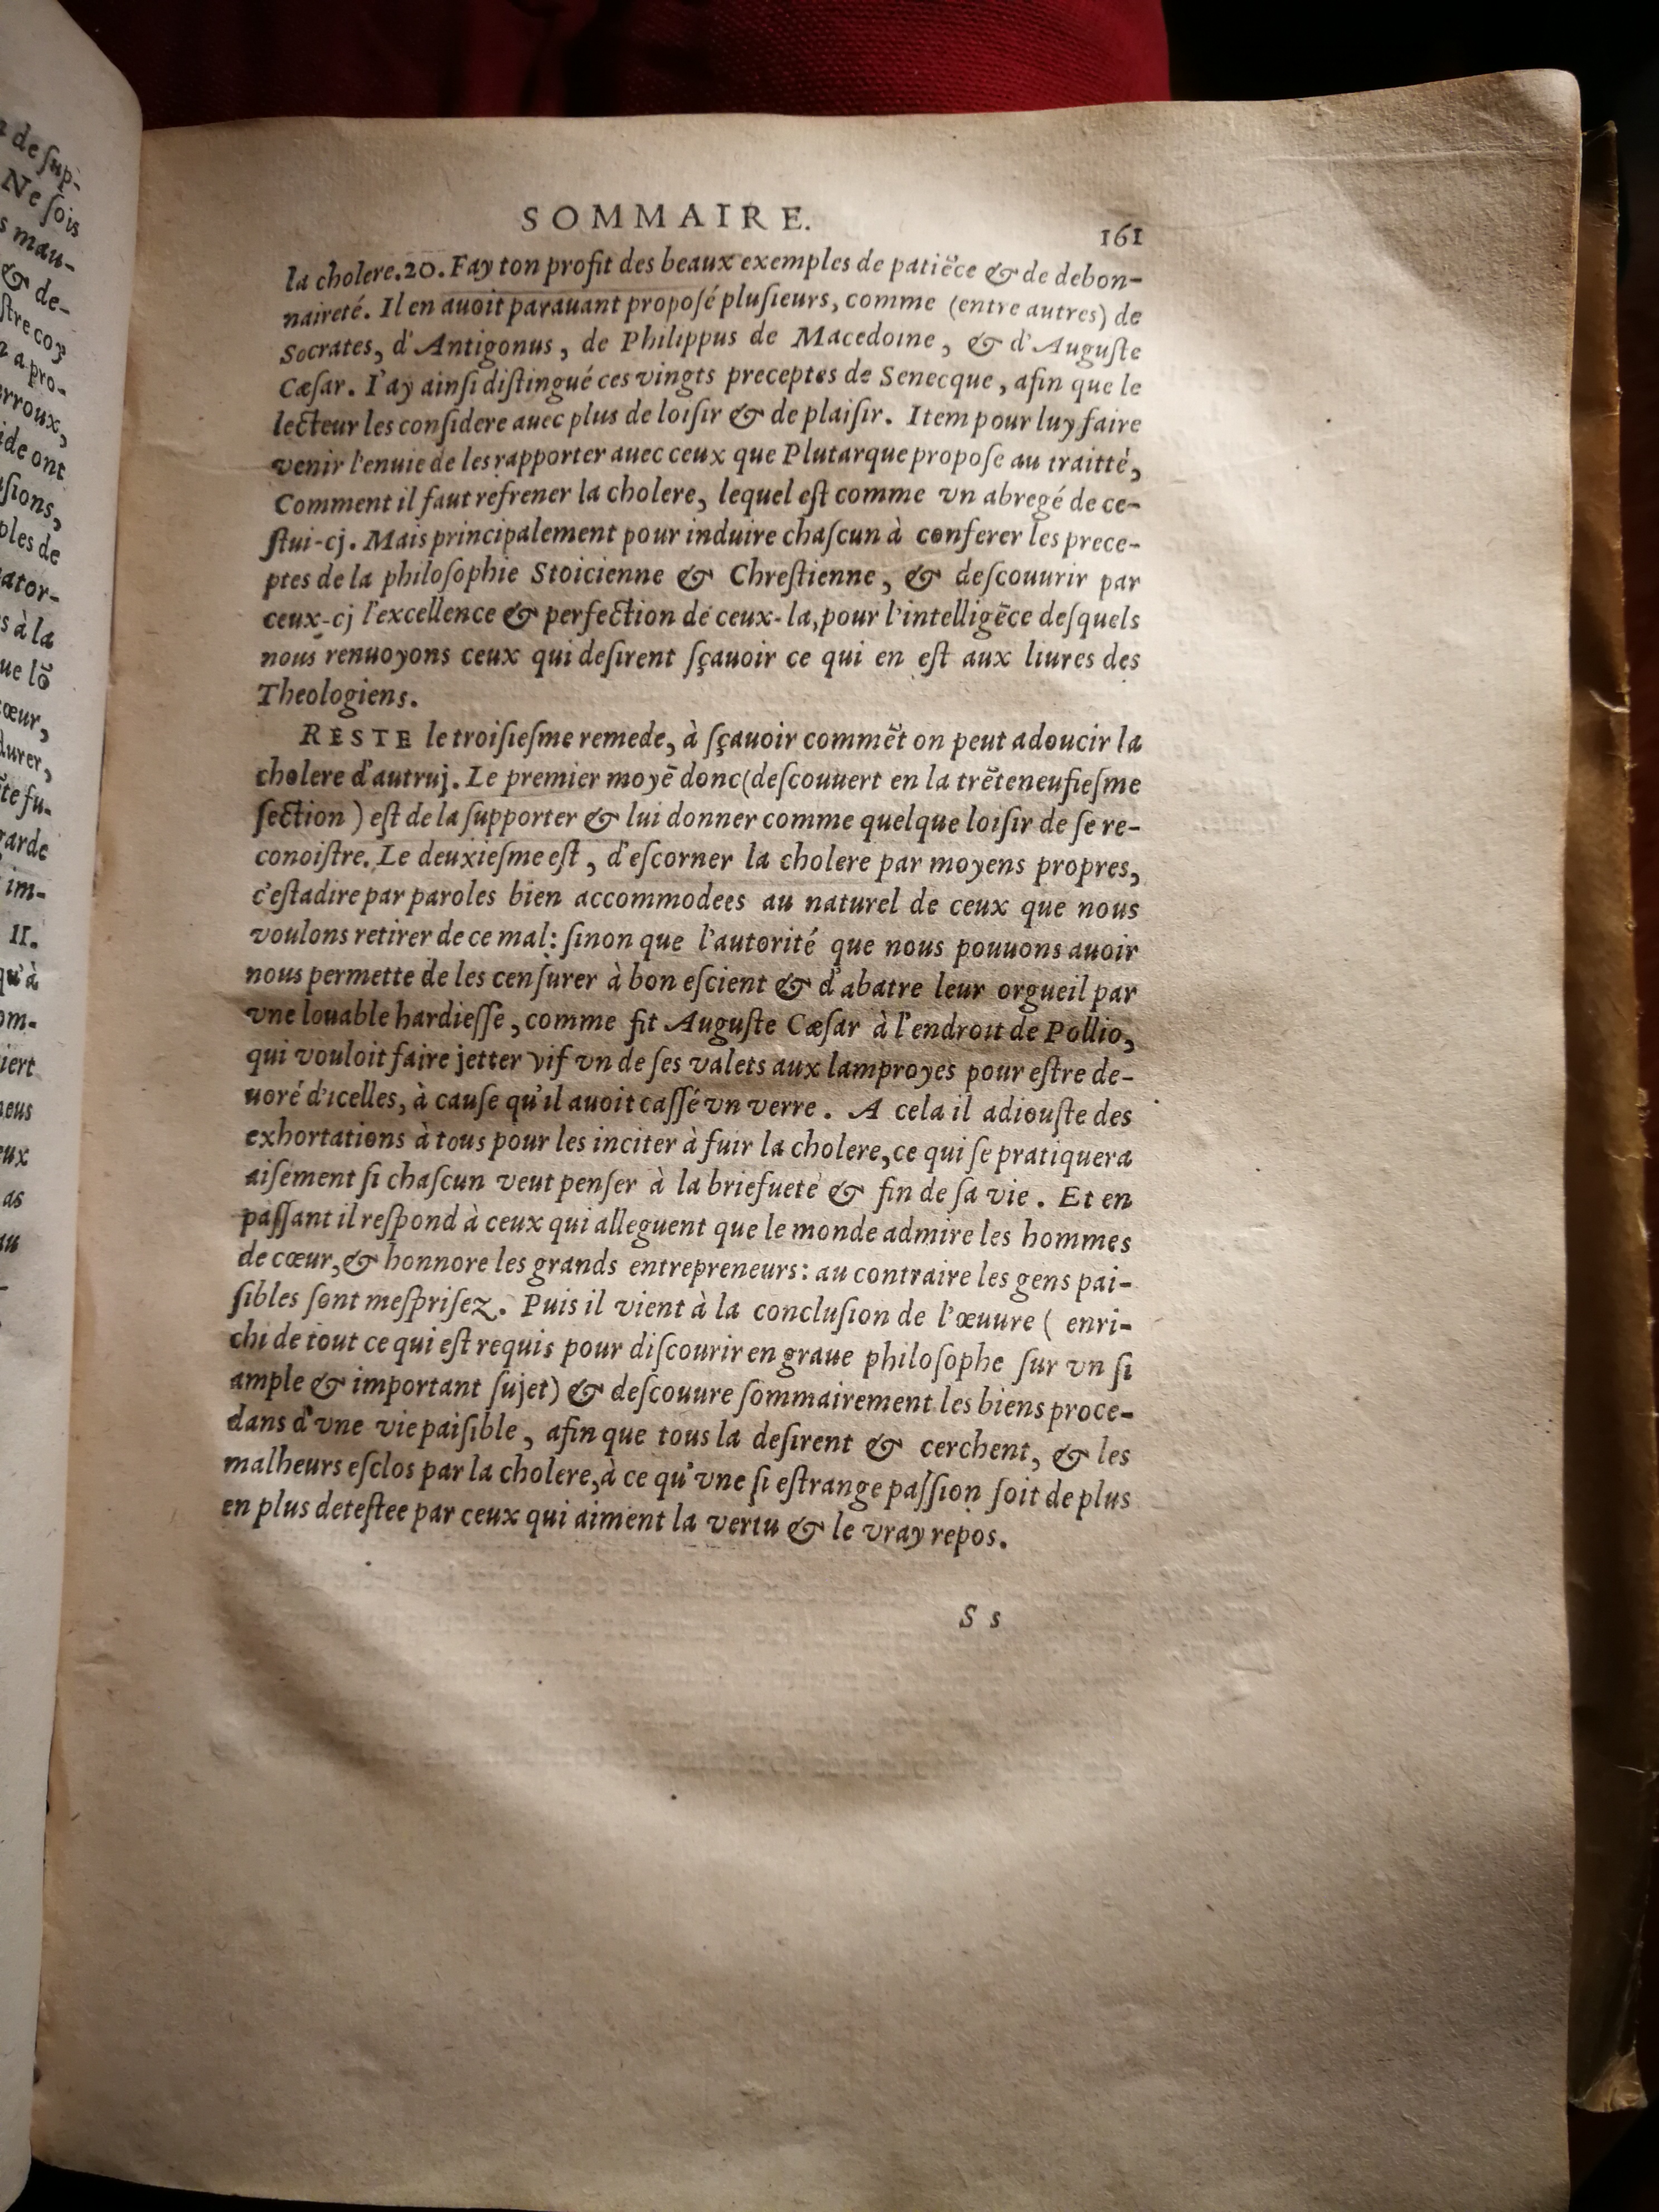 SOMMAIRE.
161
la cholere.20. Fay ton profit des beaux exemples de patiẽce & de debon-
naireté. Il en auoit parauant proposé plusieurs, comme (entre autres) de
Socrates, d'Antigonus, de Philippus de Macedoine, & d'Auguste
Cæsar. I'ay ainsi distingué ces vingts preceptes de Senecque, afin que le
lecteur les considere auec plus de loisir & de plaisir. Item pour luy faire
venir l'enuie de les rapporter auec ceux que Plutarque propose au traitté,
Comment il faut refrener la cholere, lequel est comme vn abregé de ce-
stui-cj. Mais principalement pour induire chascun à conferer les prece-
ptes de la philosophie Stoicienne & Chrestienne, & descouurir par
ceux-cj l'excellence & perfection de ceux-la, pour l'intelligẽce desquels
nous renuoyons ceux qui desirent sçauoir ce qui en est aux liures des
Theologiens.
RESTE le troisiesme remede, à sçauoir commẽt on peut adoucir la
cholere d'autruj. Le premier moyẽ donc (descouuert en la trẽteneufiesme
section) est de la supporter & lui donner comme quelque loisir de se re-
conoistre. Le deuxiesme est, d'escorner la cholere par moyens propres,
c'estadire par paroles bien accommodees au naturel de ceux que nous
voulons retirer de ce mal: sinon que l'autorité que nous pouuons auoir
nous permette de les censurer à bon escient & d'abatre leur orgueil par
vne louable hardiesse, comme fit Auguste Cæsar à l'endroit de Pollio,
qui vouloit faire jetter vif vn de ses valets aux lamproyes pour estre de-
uoré d'icelles, à cause qu'il auoit cassé vn verre. A cela il adiouste des
exhortations à tous pour les inciter à fuir la cholere, ce qui se pratiquera
aisement si chascun veut penser à la briefueté & fin de sa vie. Et en
passant il respond à ceux qui alleguent que le monde admire les hommes
de cœur, & honnore les grands entrepreneurs: au contraire les gens pai-
sibles sont mesprisez. Puis il vient à la conclusion de l'œuure ( enri-
chi de tout ce qui est requis pour discourir en graue philosophe sur vn si
ample & important sujet) & descouure sommairement les biens proce-
dans d'vne vie paisible, afin que tous la desirent & cerchent, & les
malheurs esclos par la cholere, à ce qu'vne si estrange passion soit de plus
en plus detestee par ceux qui aiment la vertu & le vray repos.
S s
de sup-
Ne sois
mau-
& de-
a pro-
ide ont
ples de
s à la
ue lõ
II.
qu'à
as